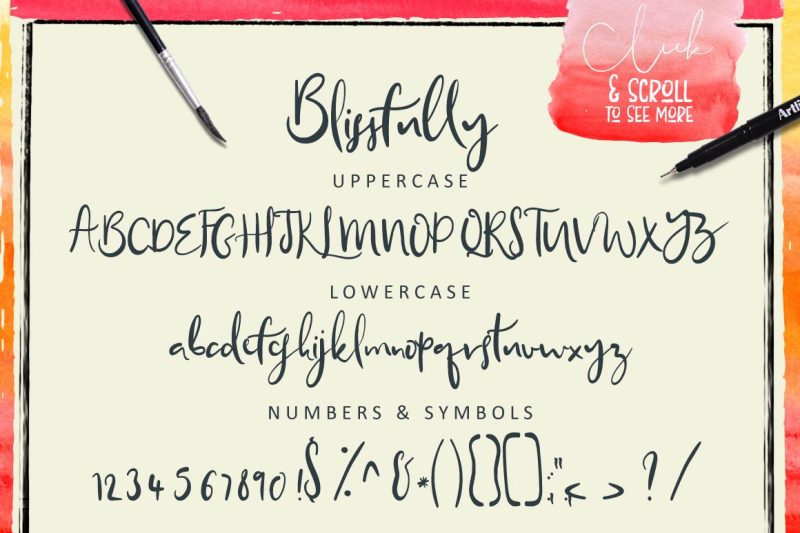 Click
& SCROLL
TO SEE MORE
Artli
Blissfully
UPPERCASE
ABCDEFGHIJKLMNOPQRSTUVWXYZ
LOWERCASE
abcdefghijklmnopqrstuvwxyz
NUMBERS & SYMBOLS
1234567890!$%^&*(){}[]:;"',.<>?/